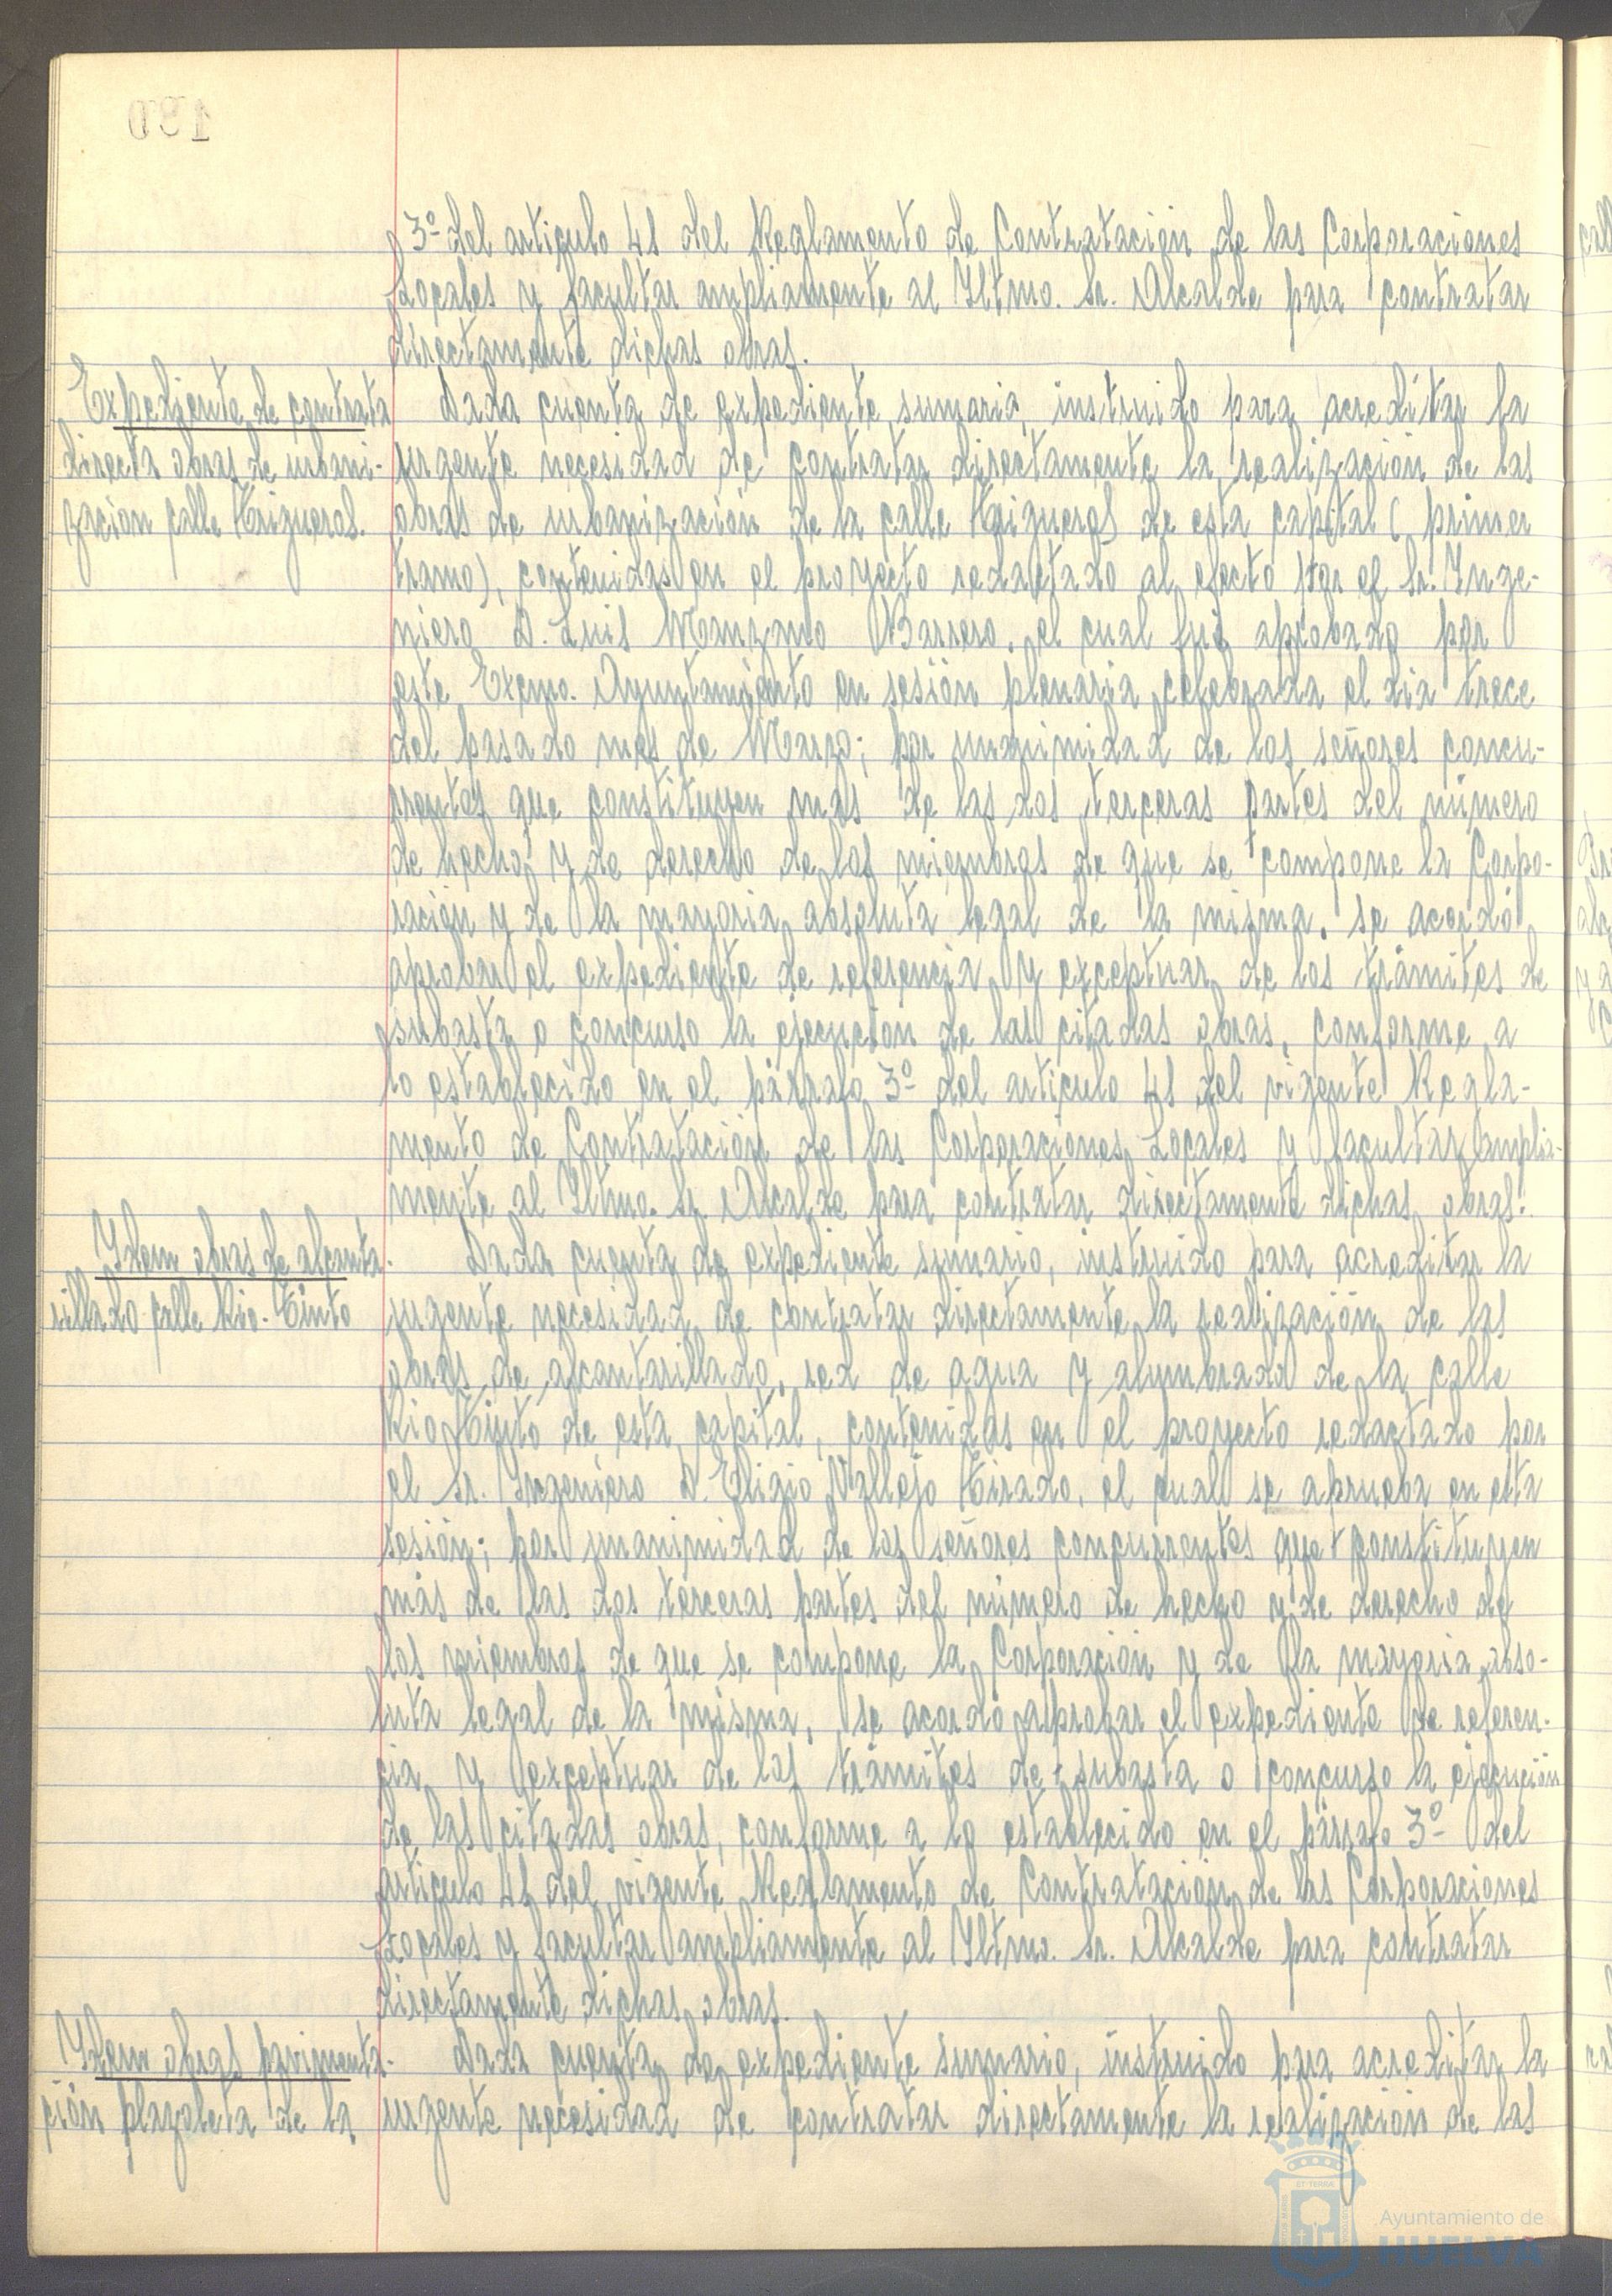 190
3º del articulo 41 del Reglamento de Contratación de las Corporaciones
Locales y facultar ampliamente al Iltmo. Sr. Alcalde para contratar
directamente dichas obras.
Expediente de contrata
directa obras de urbani-
zación calle Trigueros.
Dada cuenta de expediente sumario, instruido para acreditar la
urgente necesidad de contratar directamente la realización de las
obras de urbanización de la calle Trigueros de esta capital (primer
tramo), contenidas en el proyecto redactado al efecto por el Sr. Inge-
niero D. Luis Manzano Barrero, el cual fué aprobado por
este Excmo. Ayuntamiento en sesión plenaria celebrada el dia trece
del pasado mes de Marzo; por unanimidad de los señores concu-
rrentes que constituyen más de las dos terceras partes del número
de hecho y de derecho de los miembros de que se compone la Corpo-
ración y de la mayoria absoluta legal de la misma, se acordó
aprobar el expediente de referencia y exceptuar de los trámites de
subasta o concurso la ejecución de las citadas obras, conforme a
lo establecido en el párrafo 3º del articulo 41 del vigente Regla-
mento de Contratación de las Corporaciones Locales y facultar amplia-
mente al Iltmo. Sr. Alcalde para contratar directamente dichas obras.
Idem obras de alcanta-
rillado calle Rio-Tinto
Dada cuenta de expediente sumario, instruido para acreditar la
urgente necesidad de contratar directamente la realización de las
obras de alcantarillado, red de agua y alumbrado de la calle
Rio Tinto de esta capital, contenidas en el proyecto redactado por
el Sr. Ingeniero D. Eligio Vallejo Tirado, el cual se aprueba en esta
sesión; por unanimidad de los señores concurrentes que constituyen
más de las dos terceras partes del número de hecho y de derecho de
los miembros de que se compone la Corporación y de la mayoria abso-
luta legal de la misma, se acordó aprobar el expediente de referen-
cia y exceptuar de los trámites de subasta o concurso la ejecución
de las citadas obras, conforme a lo establecido en el párrafo 3º del
articulo 41 del vigente Reglamento de Contratación de las Corporaciones
Locales y facultar ampliamente al Iltmo. Sr. Alcalde para contratar
directamente dichas obras.
Idem obras pavimenta-
ción plazoleta de la
Dada cuenta de expediente sumario, instruido para acreditar la
urgente necesidad de contratar directamente la realización de las
Ayuntamiento de
HUELVA